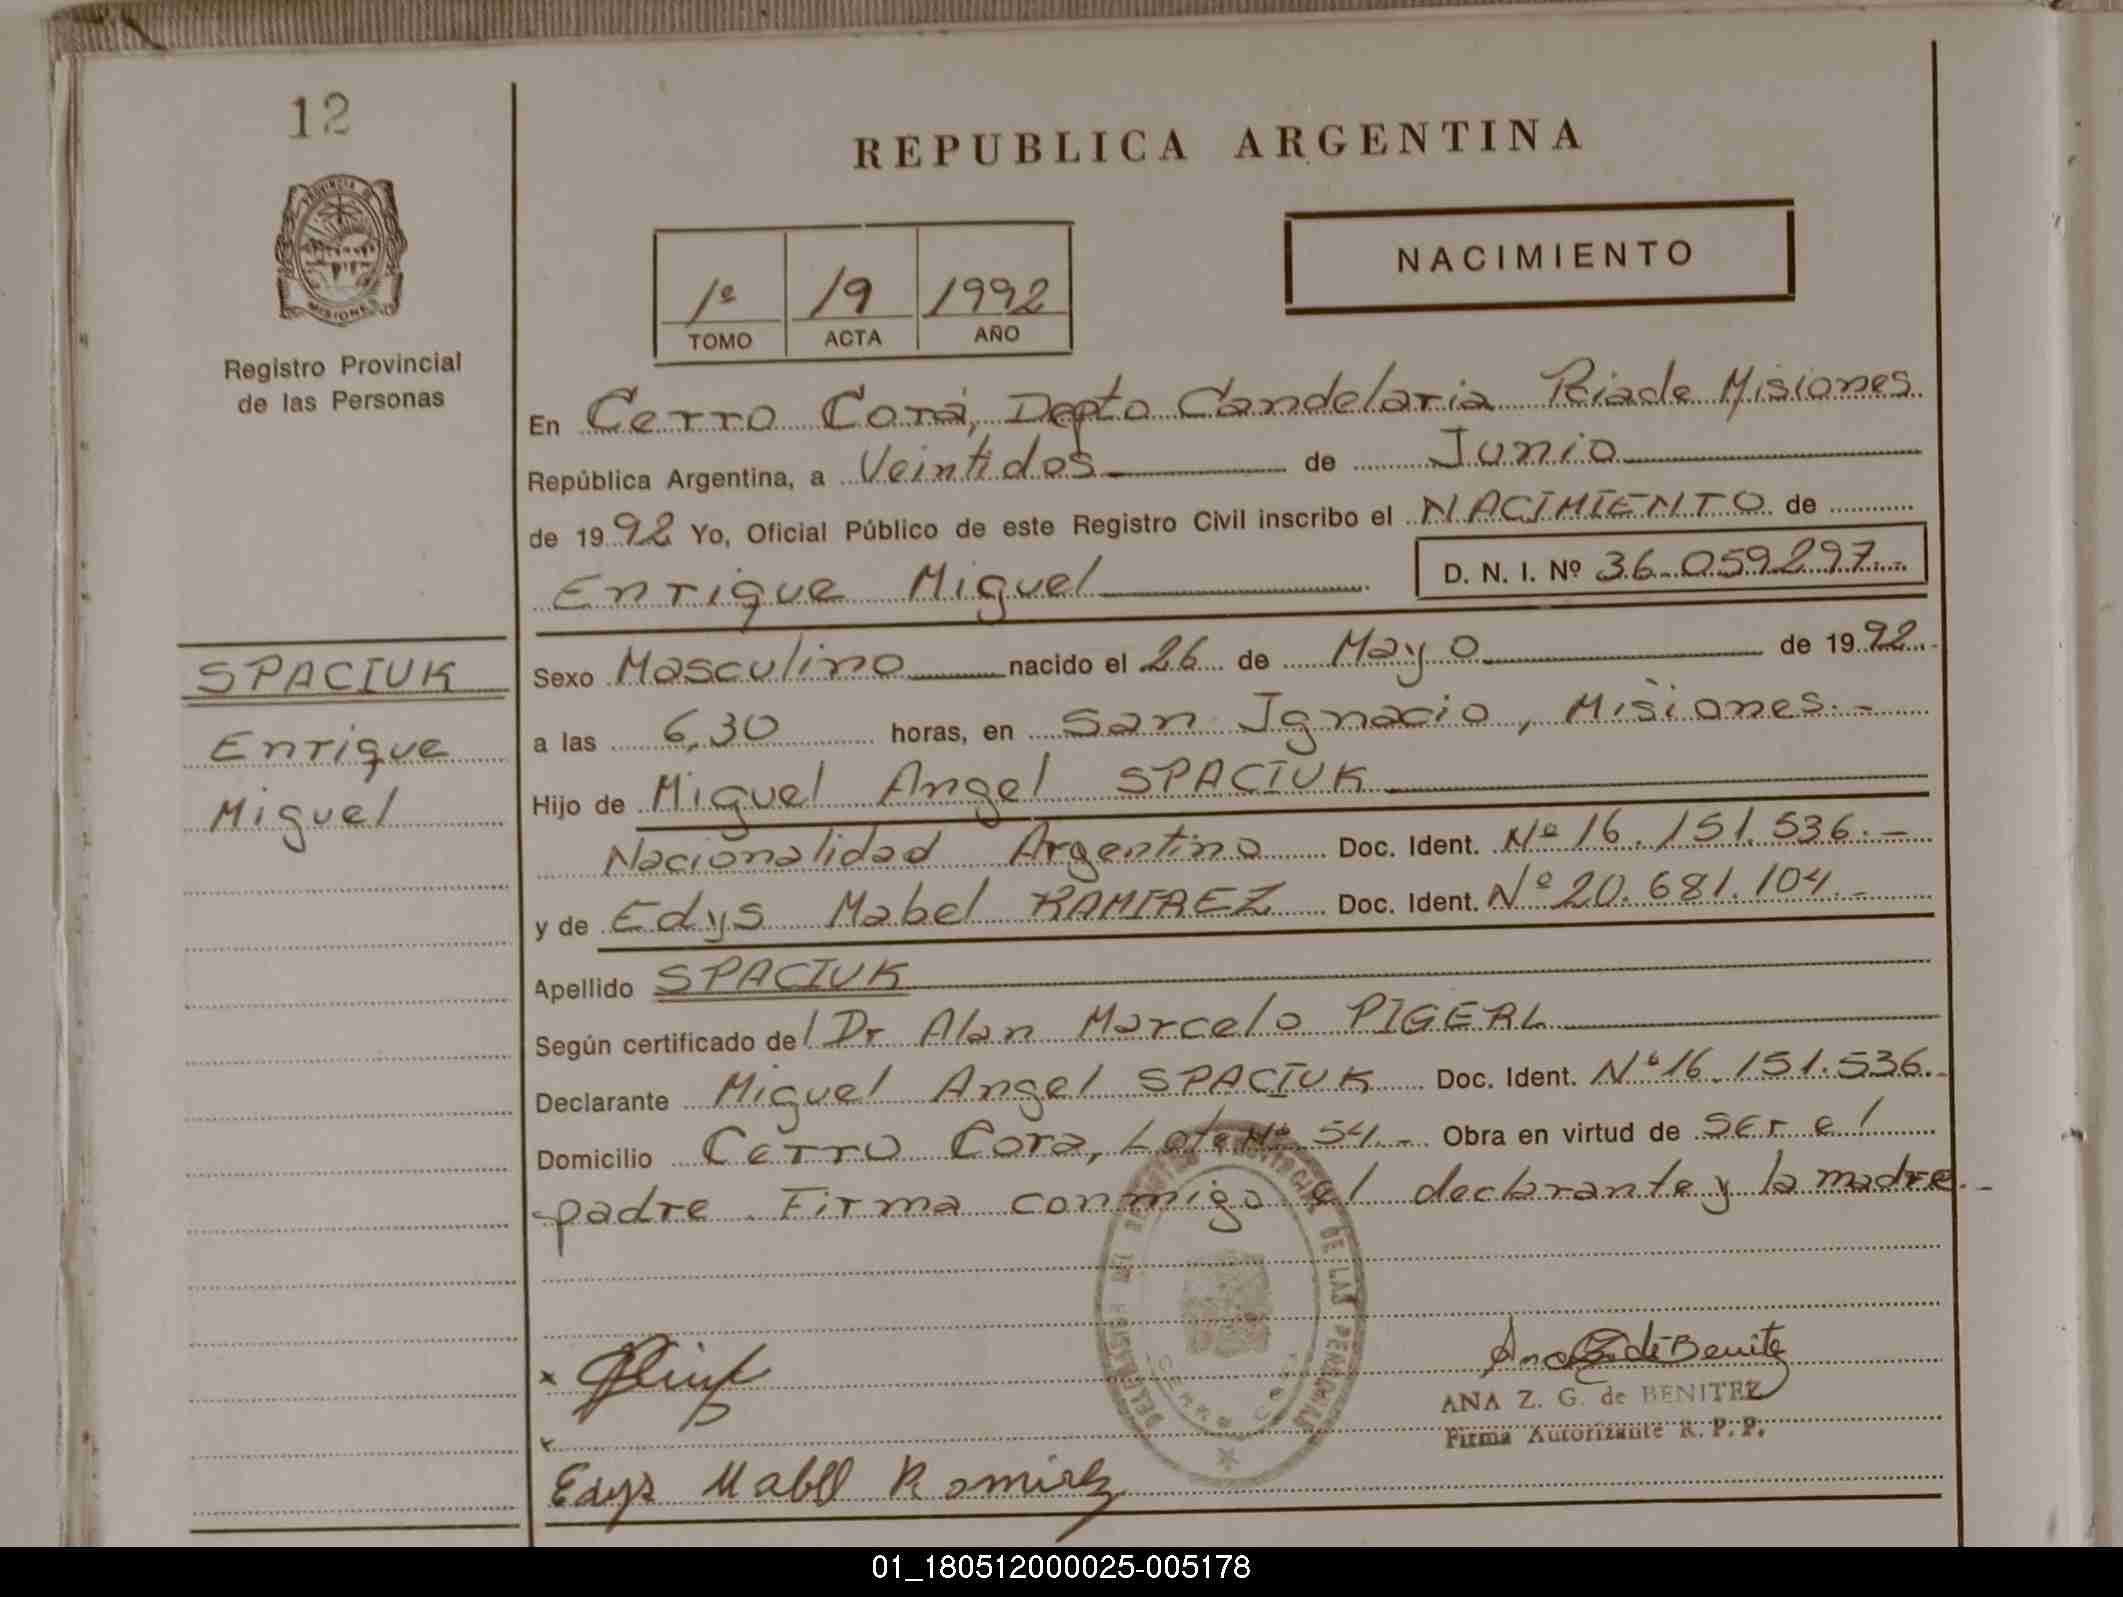 12
REPUBLICA ARGENTINA
NACIMIENTO
1º 19 1992
TOMO ACTA AÑO
MISIONES
Registro Provincial
de las Personas
En Cerro Corá, Depto Candelaria Pciade Misiones.
República Argentina, a Veintidos de Junio
de 1992 Yo, Oficial Público de este Registro Civil inscribo el NACIMIENTO de
Enrique Miguel D. N. I. Nº 36.059.297.-
SPACIUK
Enrique
Miguel
Sexo Masculino nacido el 26 de Mayo de 1992.
a las 6,30 horas, en San Ignacio, Misiones.-
Hijo de Miguel Angel SPACIUK
Nacionalidad Argentino Doc. Ident. Nº 16.151.536.-
y de Edys Mabel RAMIREZ Doc. Ident. Nº 20.681.104.-
Apellido SPACIUK
Según certificado del Dr Alan Marcelo PIGERL
Declarante Miguel Angel SPACIUK Doc. Ident. Nº 16.151.536.-
Domicilio Cerro Cora, Lote Nº 54.- Obra en virtud de ser el
padre. Firma conmigo el declarante y la madre.-
DE LAS PERSONAS
CERRO CORA
Ana Z G de Benitez
ANA Z. G. de BENITEZ
Firma Autorizante R. P. P.
Edys Mabel Ramirez
01_180512000025-005178